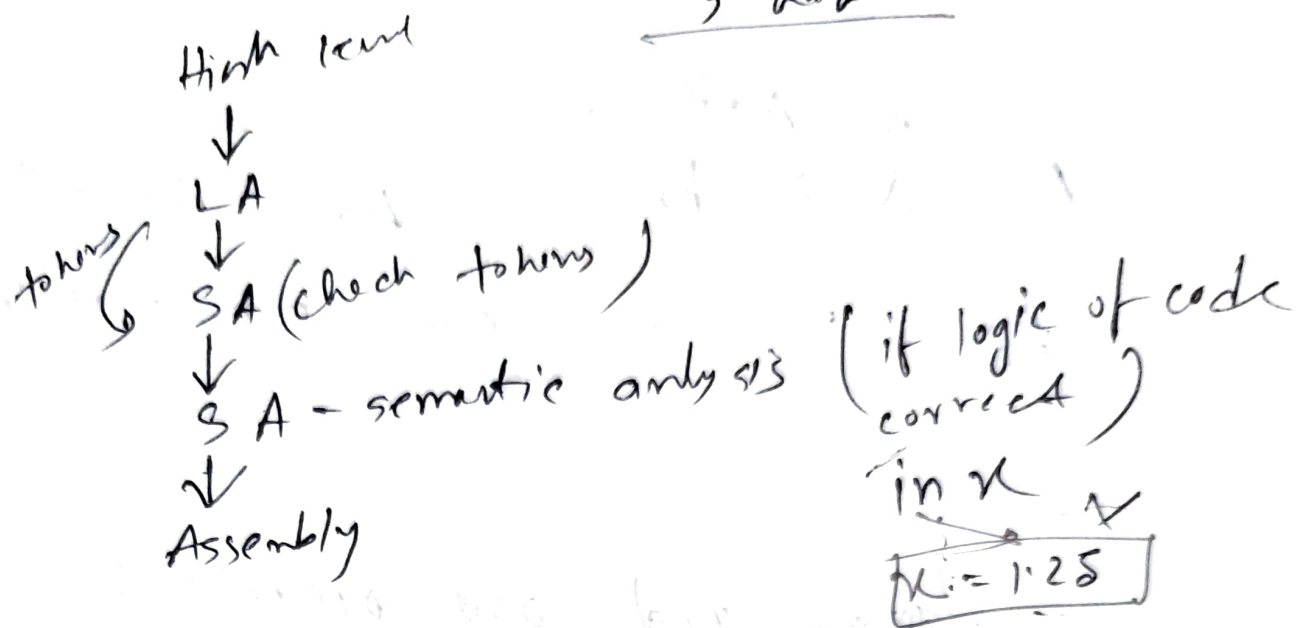 High level
LA
tokens
SA (check tokens)
SA - semantic anlysis (if logic of code
correct)
in x
x = 1.25
Assembly